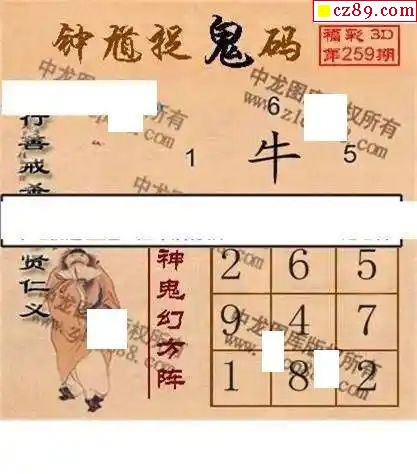 cz89.com
钟馗捉鬼码
福彩3D
第259期
行善戒
6
1 牛 5
贤仁义
神鬼幻方阵
2 6 5
9 4 7
1 8 2
中龙图库版权所有